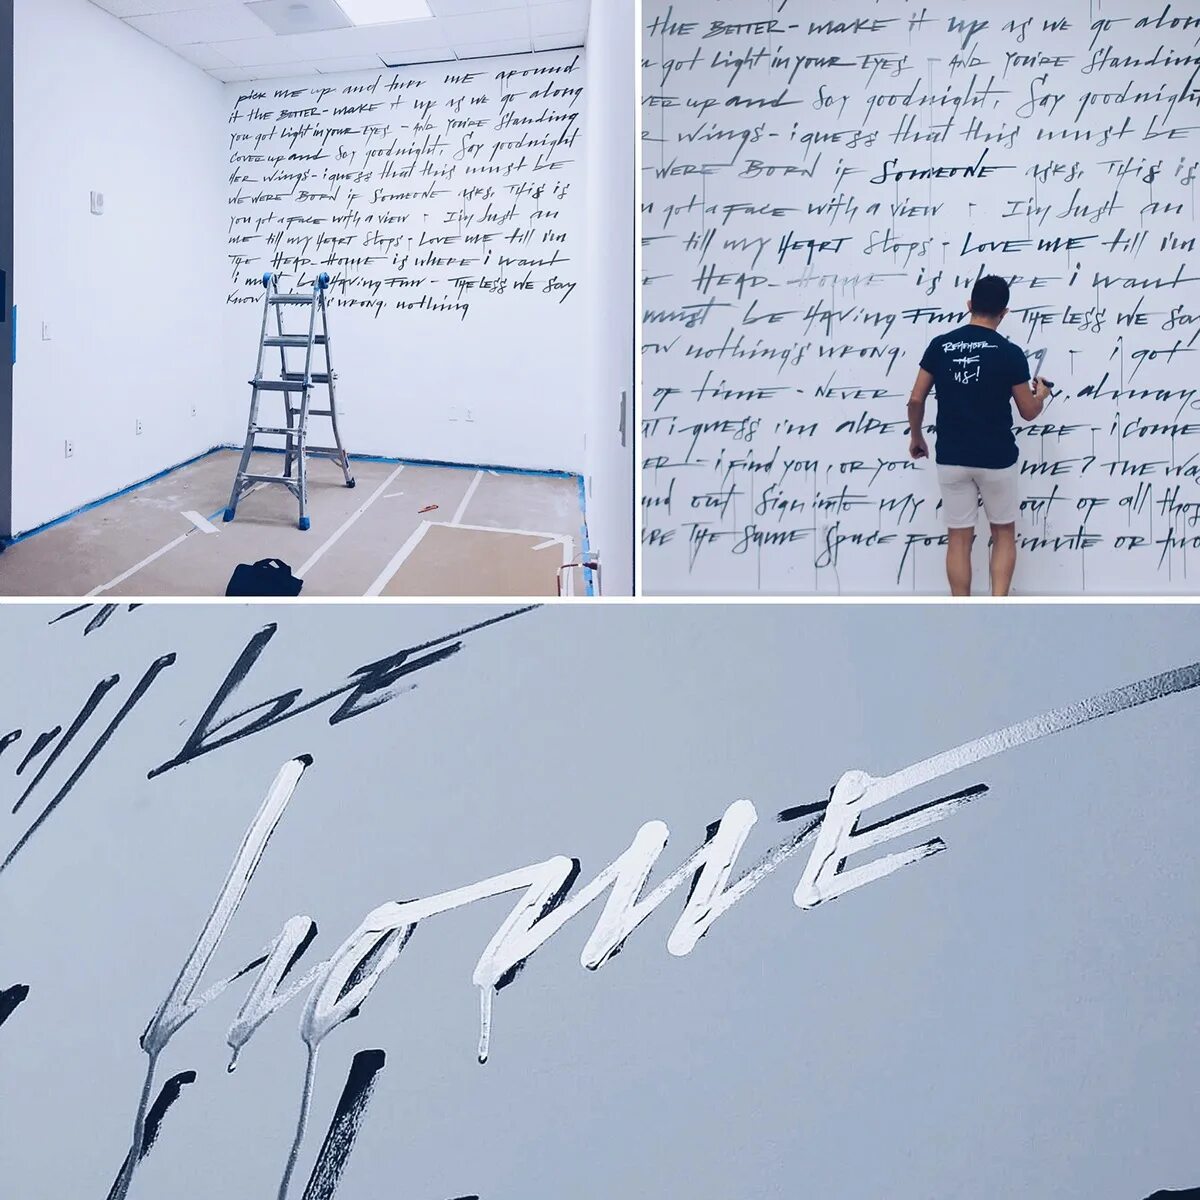 pick me up and turn me around
it the BETTER - make it up as we go along
you got light in your EYES - AND YOU'RE Standing
cover up and Say goodnight, Say goodnight
HER wings - i guess that this must be
WE WERE BORN if SOMEONE asks, THIS is
you got a FACE with a view - I'm Just an
me till my HEART Stops - LOVE ME till i'm
THE HEAD - HOME is WHERE i want
i Having FUN - THE LESS WE Say
KNOW wrong, nothing
the BETTER - make it up as we go along
got light in your EYES - AND YOU'RE Standing
up and Say goodnight, Say goodnight
wings - i guess that this must be
WERE BORN if SOMEONE asks, THIS is
got a FACE with a view - I'm Just an
till my HEART Stops - LOVE ME till i'm
HEAD - HOME is i want
must be Having FUN THE LESS WE Say
nothing's wrong, - i got
of time - NEVER always
i guess i'm HERE - i COME
- i find you, OR you ME? THE
out Sign into my out of all
THE Same Space FOR minute OR two
REMEMBER
ME
us!
BE
home